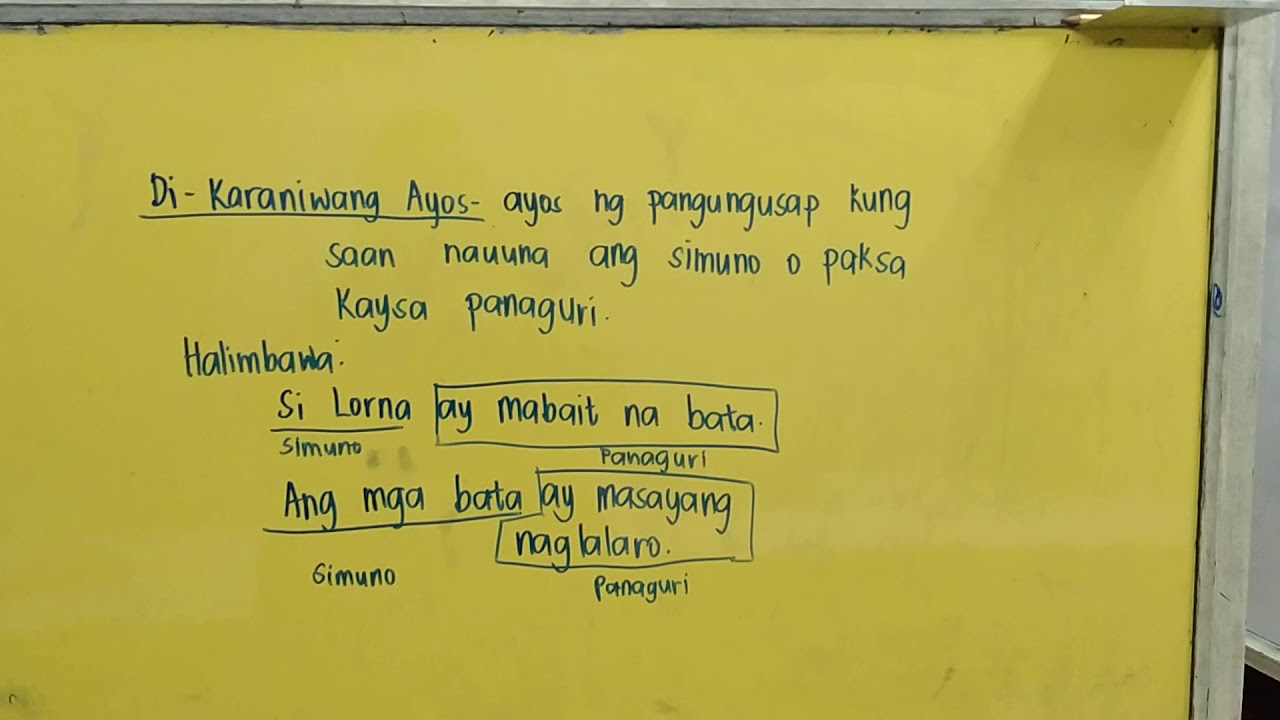 Di-Karaniwang Ayos- ayos ng pangungusap kung
saan nauuna ang simuno o paksa
Kaysa panaguri.
Halimbawa:
Si Lorna ay mabait na bata.
Simuno Panaguri
Ang mga bata ay masayang
naglalaro.
Simuno Panaguri